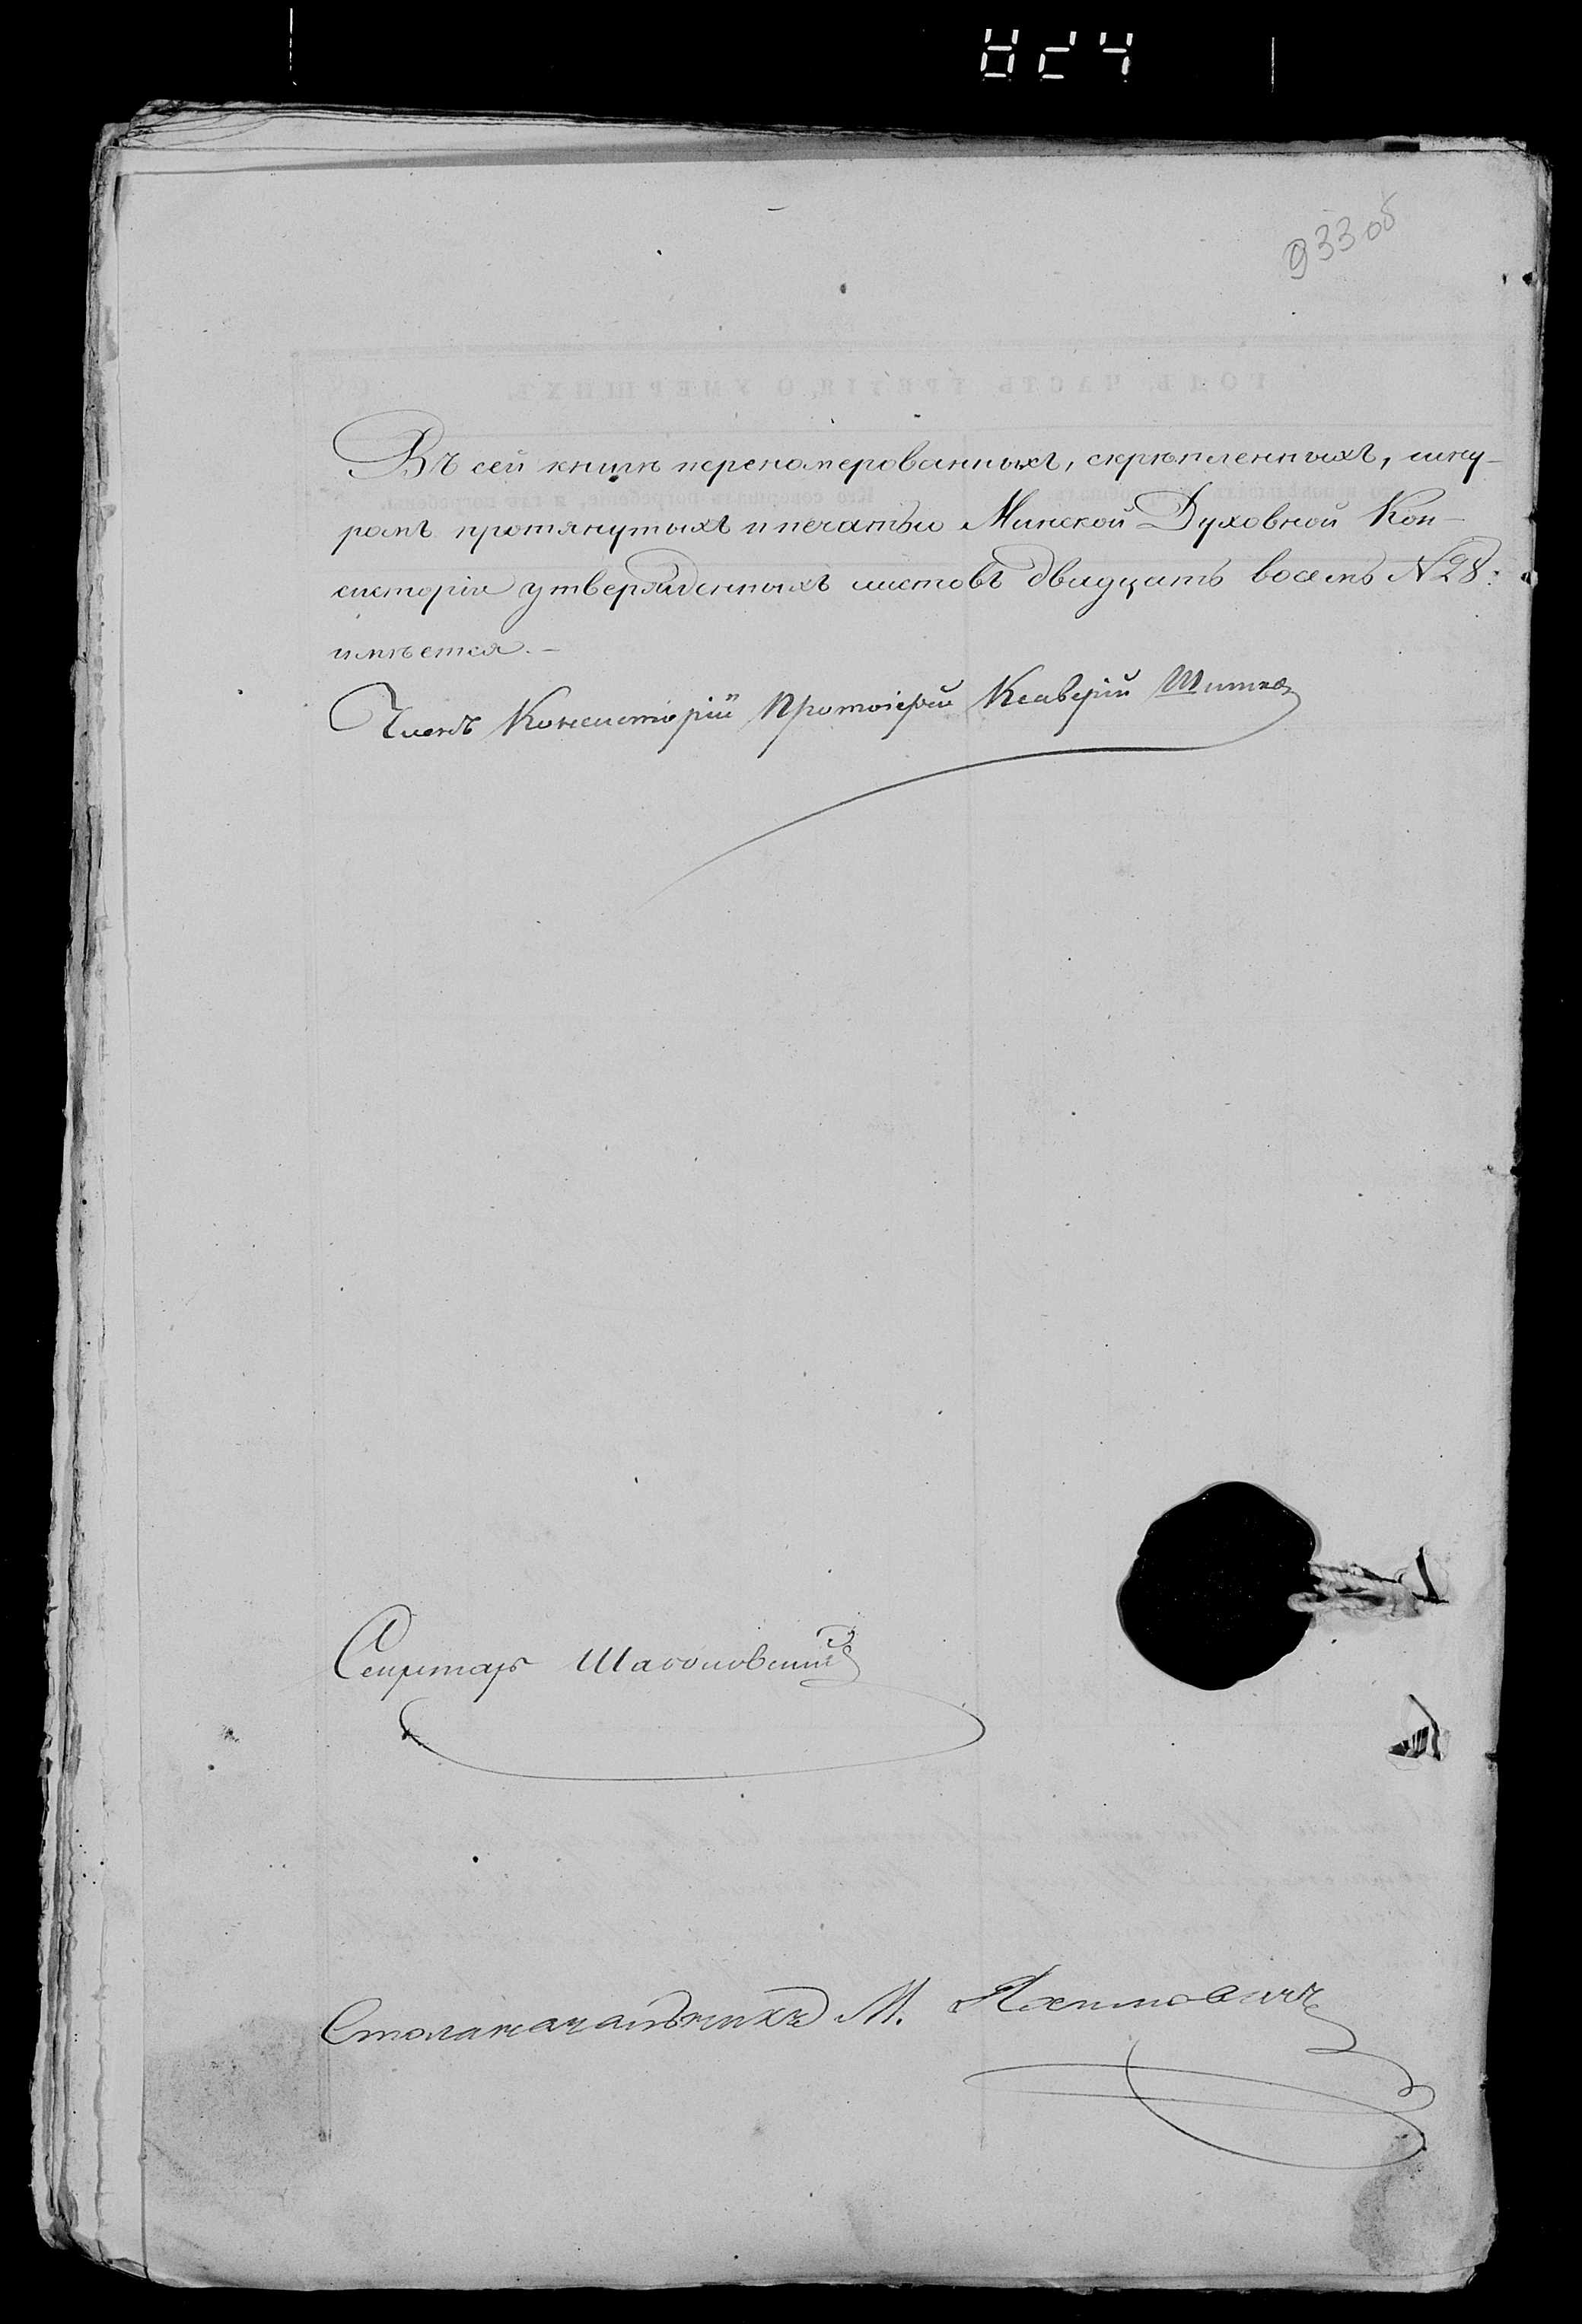 824
933 об
Въ сей книгѣ переномерованныхъ, скрѣпленныхъ, шну-
ромъ протянутыхъ и печатью Минской Духовной Кон-
систоріи утвержденныхъ листовъ двадцать восемь №28.
имѣется.—
Членъ Консисторіи Протоіерей Ксаверій
Секретарь
Столоначальникъ М.